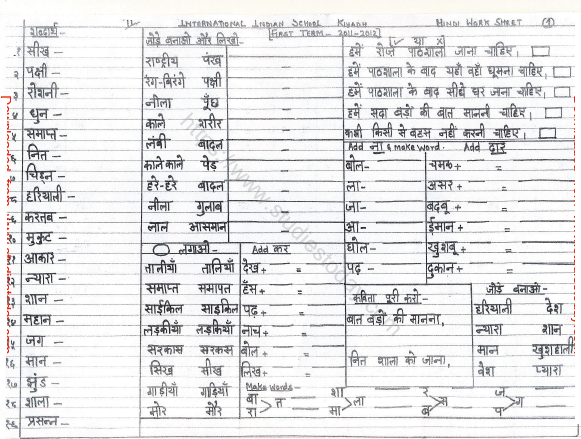 INTERNATIONAL INDIAN SCHOOL RIYADH HINDI WORK SHEET ①
[FIRST TERM - 2011-2012]
शब्दार्थ
१ सीख –
२ पक्षी –
३ रोशनी –
४ धुन –
५ समाप्त –
६ नित –
७ चिह्न –
८ हरियाली –
९ करतब –
१० मुकुट –
११ आकार –
१२ न्यारा –
१३ शान –
१४ महान –
१५ जग –
१६ मान –
१७ झुंड –
१८ शाला –
१९ प्रसन्न –
जोड़े बनाओ और लिखो
राष्ट्रीय पंख –
रंग-बिरंगे पक्षी –
नीला पूँछ –
काले शरीर –
लंबी बादल –
काले काले पेड़ –
हरे-हरे बादल –
नीला गुलाब –
लाल आसमान –
[✓ या X]
हमें रोज़ पाठशाला जाना चाहिए,
हमें पाठशाला के बाद यहाँ वहाँ घूमना चाहिए,
हमें पाठशाला के बाद सीधे घर जाना चाहिए,
हमें सदा बड़ों की बात माननी चाहिए,
कभी किसी से बहस नहीं करनी चाहिए,
Add ना & make word. Add दार
बोल- चमक + =
ला- असर + =
जा- बदबू + =
आ- ईमान + =
घोल- खुशबू + =
पढ़- दुकान + =
लगाओ-
तालीयाँ तालियाँ
समाप्त समापत
साईकिल साइकिल
लड़कीयाँ लड़कियाँ
सरकास सरकस
सिख सीख
गाड़ीयाँ गाड़ियाँ
मोर मौर
Add कर
देख + =
हँस + =
पढ़ + =
नाच + =
बोल + =
लिख + =
कविता पूरी करो-
बात बड़ों की मानना,
नित शाला को जाना,
जोड़े बनाओ-
हरियाली देश
न्यारा शान
मान खुशहाली
वेश प्यारा
Make Words-
बा शा र ज
> त > ला > स > ग
रा मा ब प
https://www.studiestoday.com